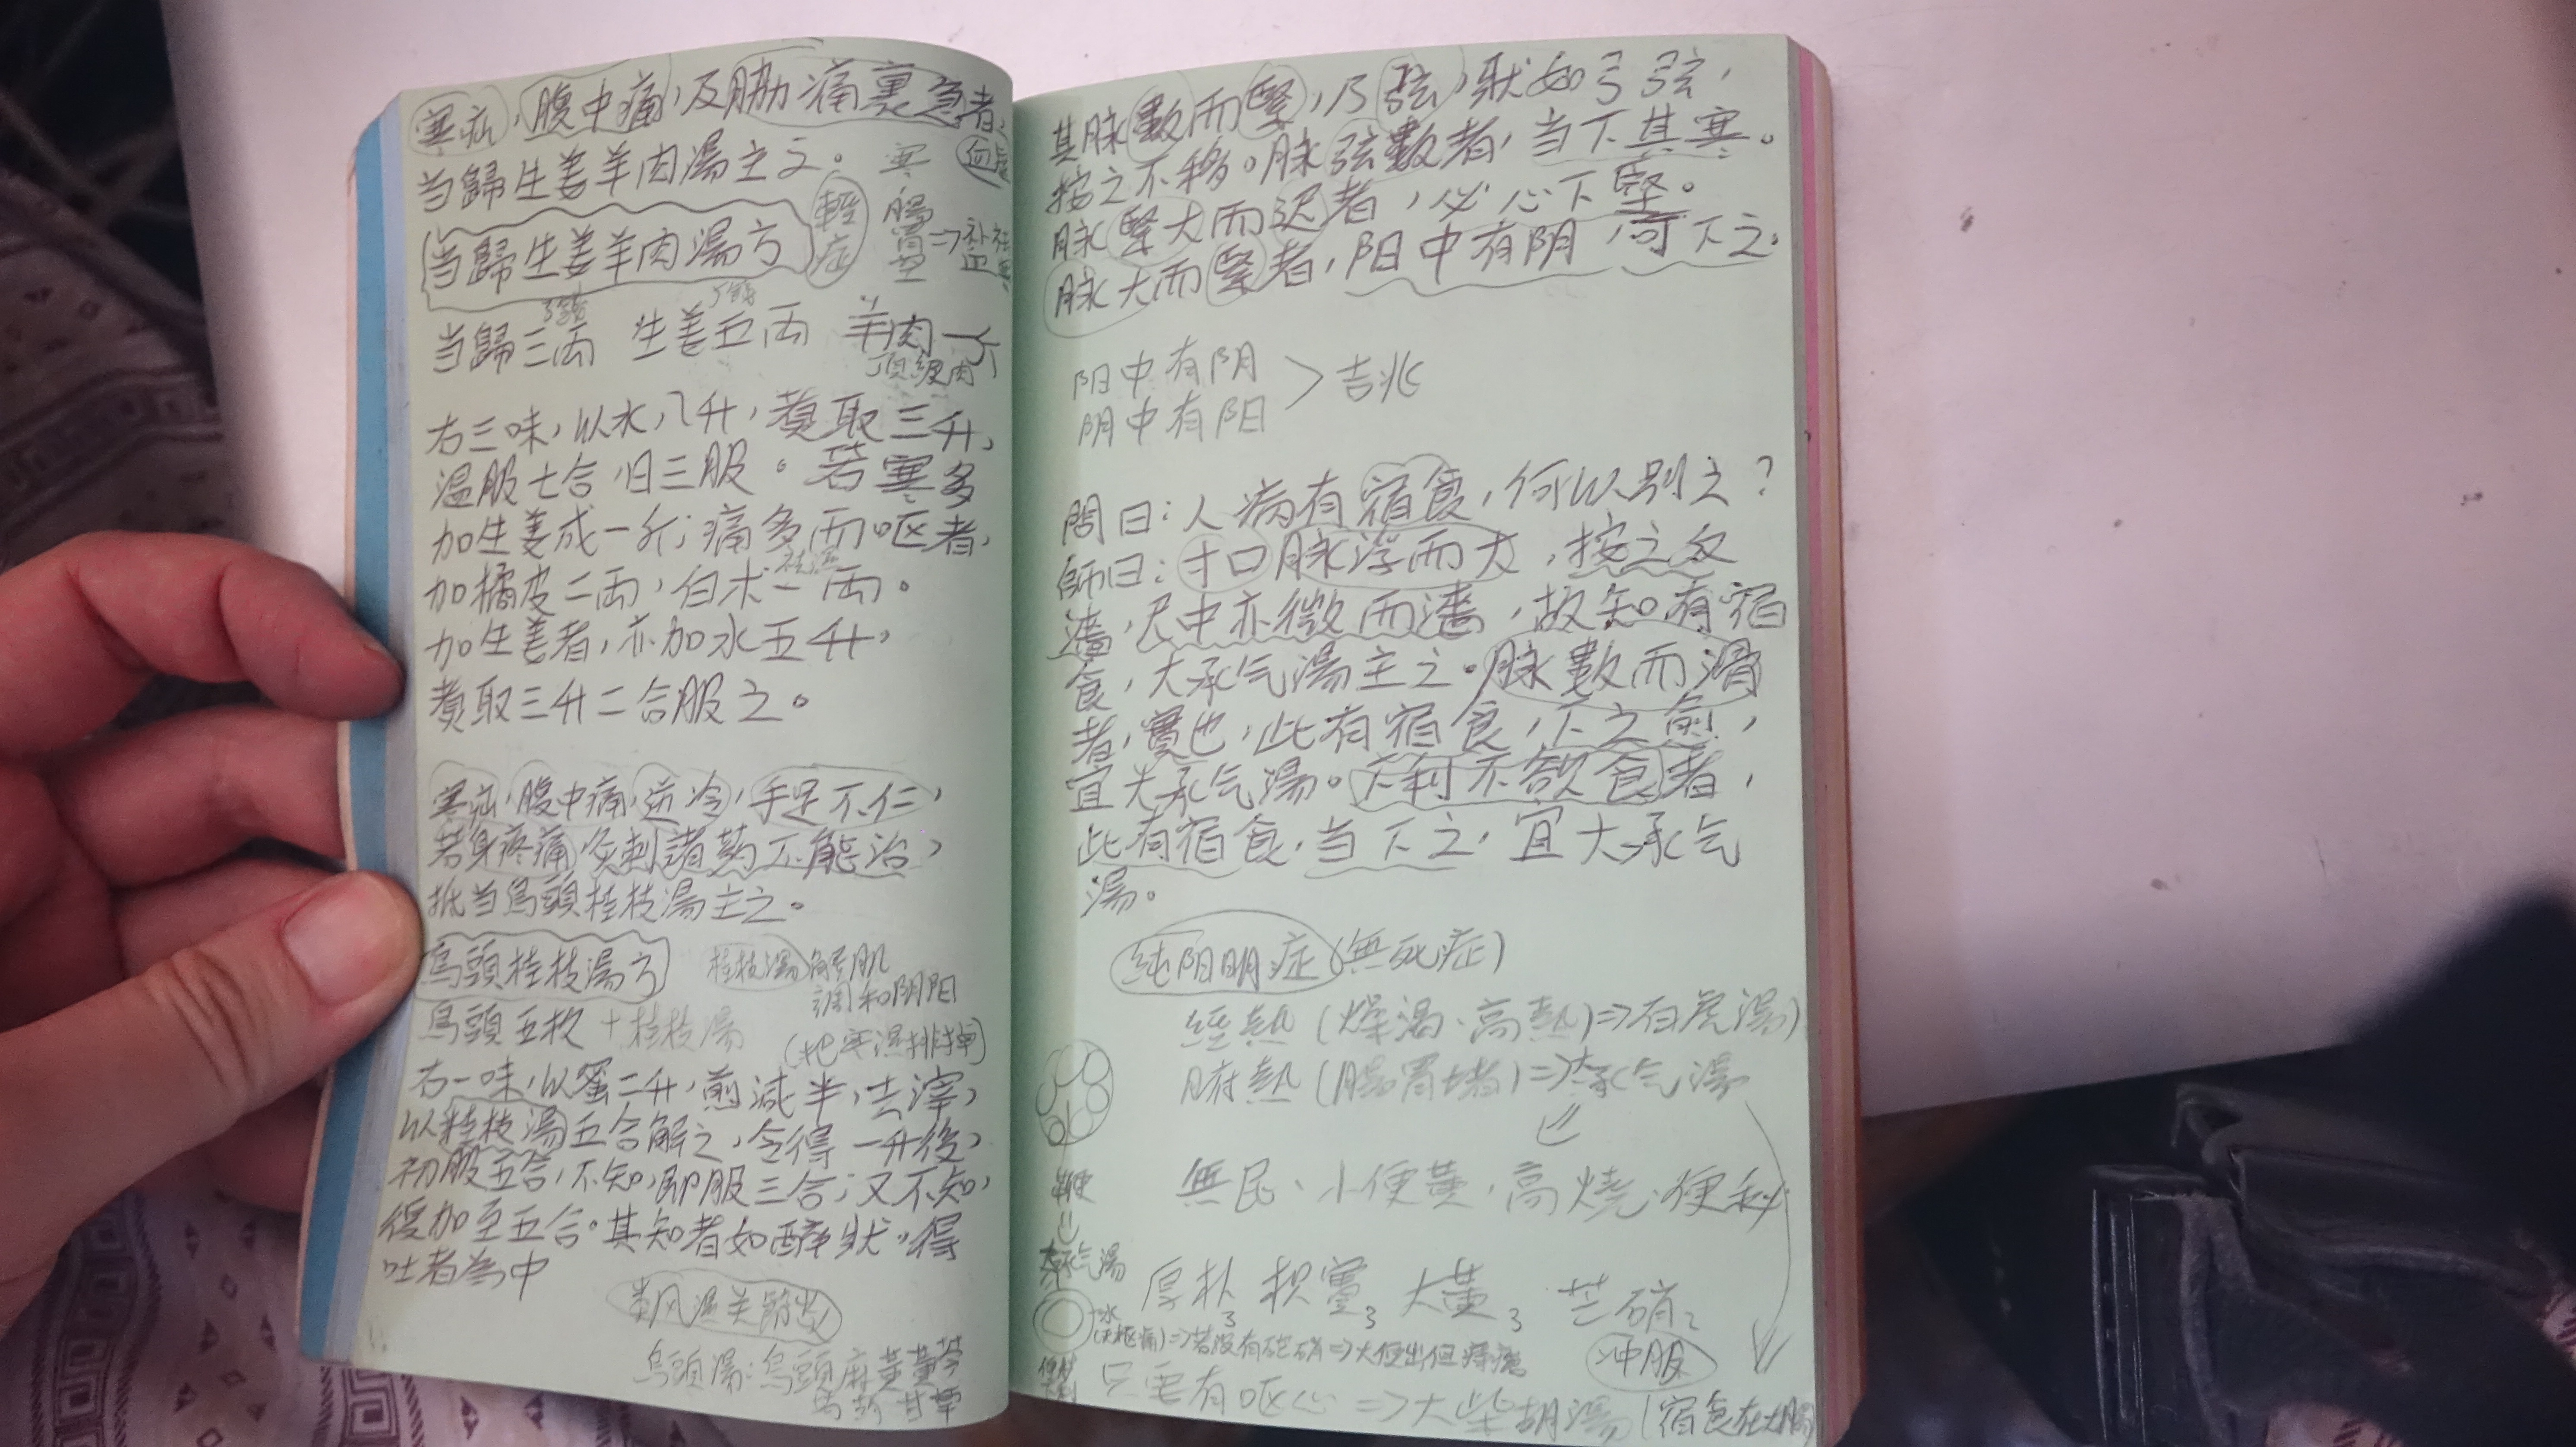 寒疝，腹中痛，及胁痛裏急者，
当歸生姜羊肉湯主之。
寒
腸
胃
輕
症
当歸生姜羊肉湯方
3錢
5錢
当歸三両 生姜五両 羊肉一斤
頂級肉
右三味，以水八升，煑取三升，
温服七合，日三服。若寒多
加生姜成一斤；痛多而呕者，
加橘皮二両，白术一両。
加生姜者，亦加水五升，
煑取三升二合服之。
寒疝，腹中痛，逆冷，手足不仁，
若身疼痛，灸刺諸药不能治，
抵当烏頭桂枝湯主之。
烏頭桂枝湯方
桂枝湯 解肌
調和阴阳
(把寒濕排掉)
烏頭五枚 + 桂枝湯
右一味，以蜜二升，煎減半，去滓，
以桂枝湯五合解之，令得一升後，
初服五合，不知，即服三合；又不知，
復加至五合。其知者如醉状，得
吐者為中
類风濕关節炎
烏頭湯：烏頭麻黃黃芩
芍葯甘草
其脉數而緊，乃弦，狀如弓弦，
按之不移。脉弦數者，当下其寒。
脉緊大而迟者，必心下堅。
脉大而緊者，阳中有阴，可下之。
阳中有阴
阴中有阳 > 吉兆
問曰：人病有宿食，何以别之？
師曰：寸口脉浮而大，按之反
濇，尺中亦微而濇，故知有宿
食，大承气湯主之。脉數而滑
者，實也，此有宿食，下之愈，
宜大承气湯。下利不欲食者，
此有宿食，当下之，宜大承气
湯。
纯阳明症(無死症)
經熱(燥渴、高熱)⇒白虎湯)
腑熱(腸胃堵)⇒大承气湯
無尿、小便黄、高燒、便秘
大承气湯
厚朴3 枳實3 大黃3 芒硝2
⇒若没有芒硝⇒大便出但疼痛
冲服
只要有呕心⇒大柴胡湯(宿食在大腸)